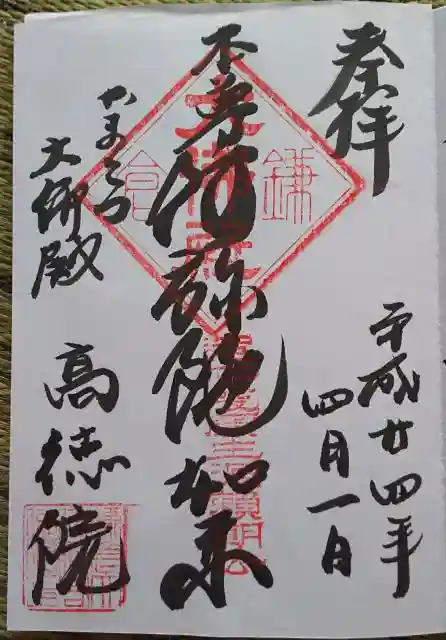 奉拝
平成廿四年
四月一日
本尊阿弥陀如来
鎌倉
大佛殿
かまくら
大佛殿
高徳院